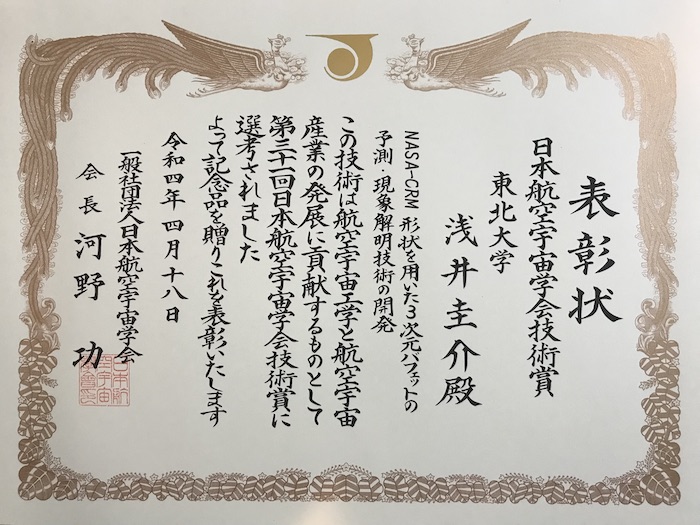 表彰状
日本航空宇宙学会技術賞
東北大学
浅井圭介殿
NASA-CRM 形状を用いた3次元バフェットの
予測・現象解明技術の開発
この技術は航空宇宙工学と航空宇宙
産業の発展に貢献するものとして
第三十一回日本航空宇宙学会技術賞に
選考されました
よって記念品を贈りこれを表彰いたします
令和四年四月十八日
一般社団法人日本航空宇宙学会
会長 河野 功